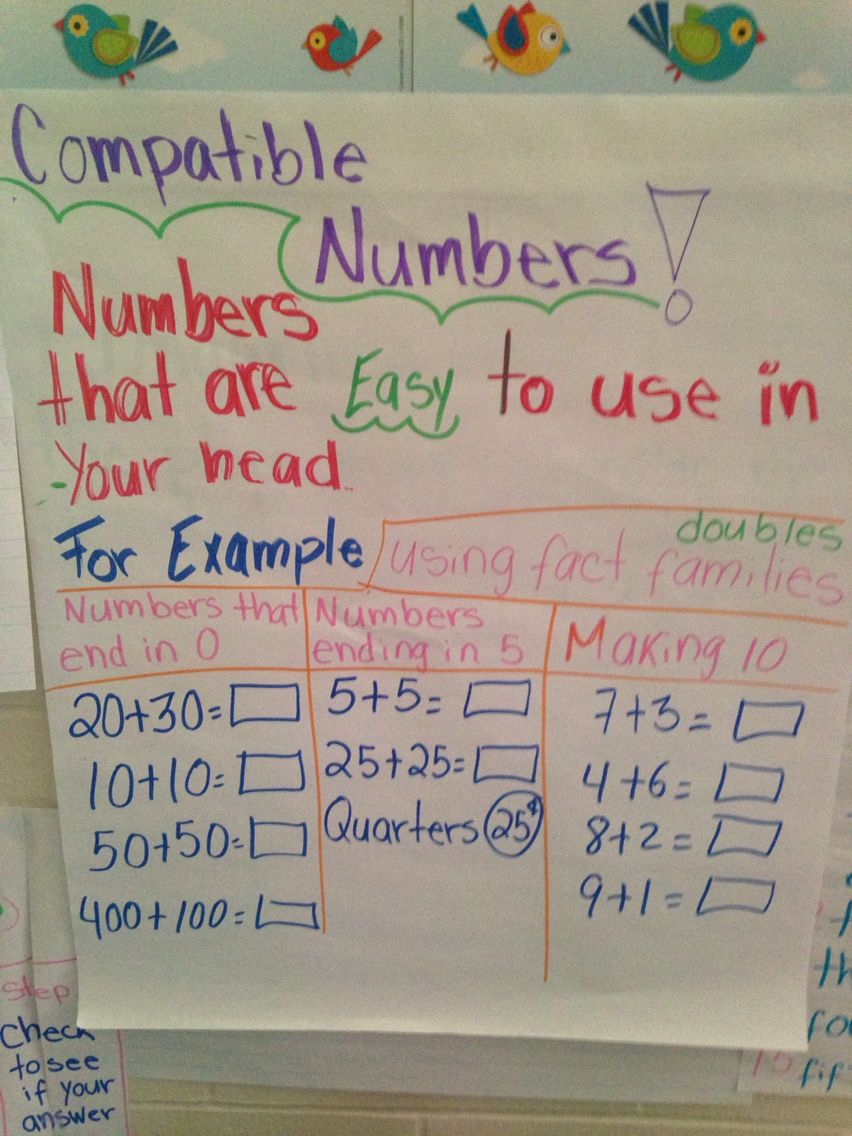 Compatible
Numbers!
Numbers
that are Easy to use in
Your head.
For Example
doubles
using fact families
Numbers that
end in 0
20+30=
10+10=
50+50=
400+100=
Numbers
ending in 5
5+5=
25+25=
Quarters 25¢
Making 10
7+3=
4+6=
8+2=
9+1=
Step
Check
to see
if your
answer